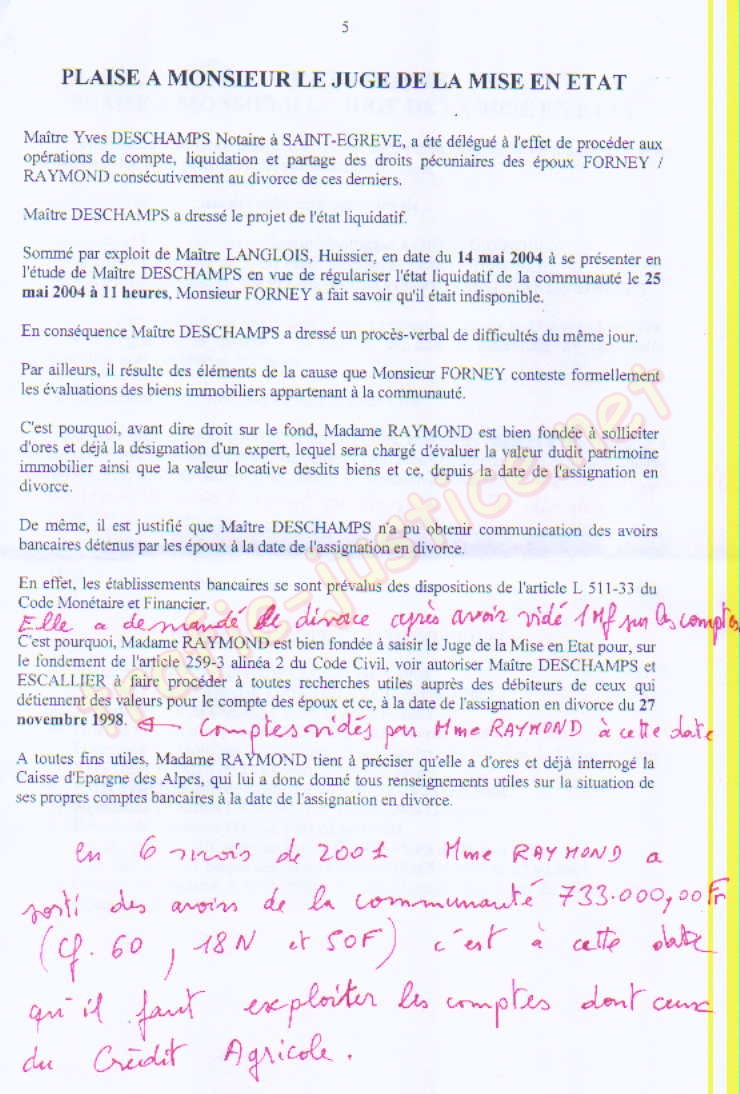 5
PLAISE A MONSIEUR LE JUGE DE LA MISE EN ETAT
Maître Yves DESCHAMPS Notaire à SAINT-EGREVE, a été délégué à l'effet de procéder aux
opérations de compte, liquidation et partage des droits pécuniaires des époux FORNEY /
RAYMOND consécutivement au divorce de ces derniers.
Maître DESCHAMPS a dressé le projet de l'état liquidatif.
Sommé par exploit de Maître LANGLOIS, Huissier, en date du 14 mai 2004 à se présenter en
l'étude de Maître DESCHAMPS en vue de régulariser l'état liquidatif de la communauté le 25
mai 2004 à 11 heures, Monsieur FORNEY a fait savoir qu'il était indisponible.
En conséquence Maître DESCHAMPS a dressé un procès-verbal de difficultés du même jour.
Par ailleurs, il résulte des éléments de la cause que Monsieur FORNEY conteste formellement
les évaluations des biens immobiliers appartenant à la communauté.
C'est pourquoi, avant dire droit sur le fond, Madame RAYMOND est bien fondée à solliciter
d'ores et déjà la désignation d'un expert, lequel sera chargé d'évaluer la valeur dudit patrimoine
immobilier ainsi que la valeur locative desdits biens et ce, depuis la date de l'assignation en
divorce.
De même, il est justifié que Maître DESCHAMPS n'a pu obtenir communication des avoirs
bancaires détenus par les époux à la date de l'assignation en divorce.
En effet, les établissements bancaires se sont prévalus des dispositions de l'article L 511-33 du
Code Monétaire et Financier.
Elle a demandé le divorce après avoir vidé 1 Mf sur les comptes
C'est pourquoi, Madame RAYMOND est bien fondée à saisir le Juge de la Mise en Etat pour, sur
le fondement de l'article 259-3 alinéa 2 du Code Civil, voir autoriser Maître DESCHAMPS et
ESCALLIER à faire procéder à toutes recherches utiles auprès des débiteurs de ceux qui
détiennent des valeurs pour le compte des époux et ce, à la date de l'assignation en divorce du 27
novembre 1998. ← Comptes vidés par Mme RAYMOND à cette date
A toutes fins utiles, Madame RAYMOND tient à préciser qu'elle a d'ores et déjà interrogé la
Caisse d'Epargne des Alpes, qui lui a donc donné tous renseignements utiles sur la situation de
ses propres comptes bancaires à la date de l'assignation en divorce.
en 6 mois de 2001 Mme RAYMOND a
sorti des avoirs de la communauté 733.000,00 Fr
(cf. 60, 18N et 50F) c'est à cette date
qu'il faut exploiter les comptes dont ceux
du Crédit Agricole.
trafic-justice.net